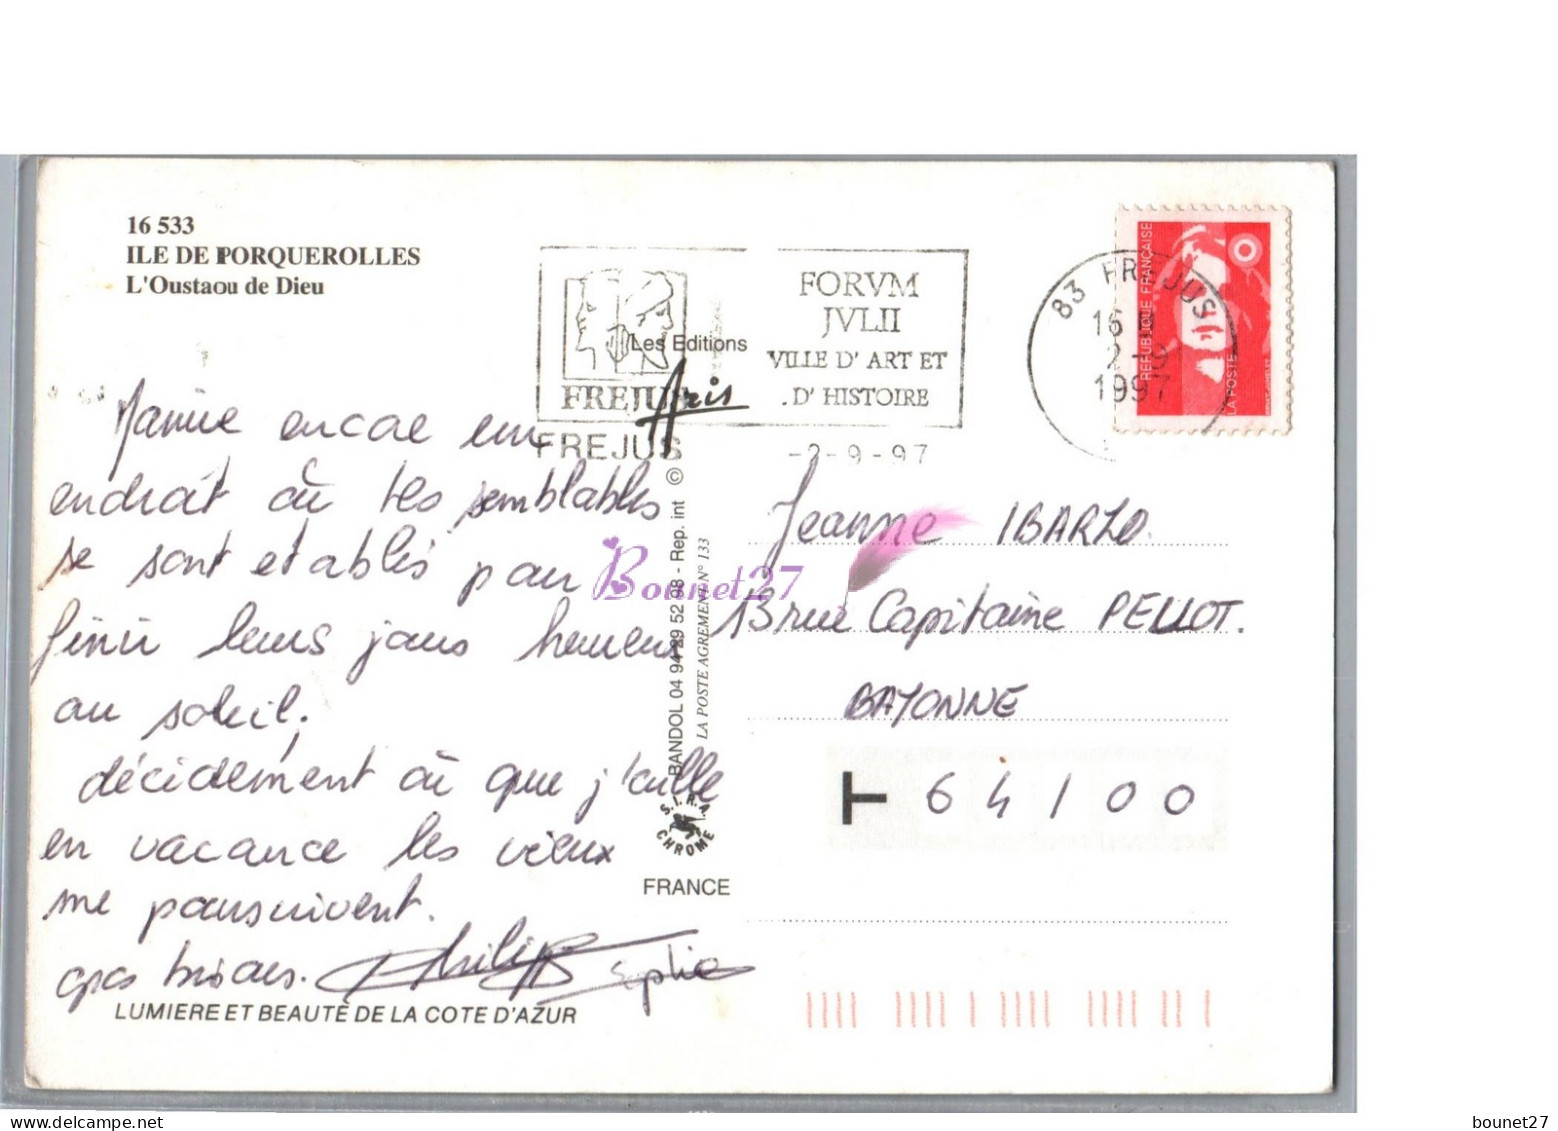 16 533
ILE DE PORQUEROLLES
L'Oustaou de Dieu
FREJUS
FORVM
JVLII
VILLE D' ART ET
D' HISTOIRE
FREJUS
-2-9-97
83 FREJUS
16
2-9
1997
REPUBLIQUE FRANÇAISE
LA POSTE
Les Editions
Aris
BANDOL 04 94 29 52 98 - Rep. int ©
LA POSTE AGREMENT N° 133
S.I.R.A.
CHROME
FRANCE
Mamie encore un
endroit où tes semblables
se sont etablis pour
finir leurs jours heureux
au soleil;
décidement où que j'aille
en vacance les vieux
me poursuivent.
gros bisous. Philippe Sophie
LUMIERE ET BEAUTÉ DE LA COTE D'AZUR
Jeanne IBARZO.
13 rue Capitaine PELLOT.
BAYONNE
64100
Bounet27
bounet27